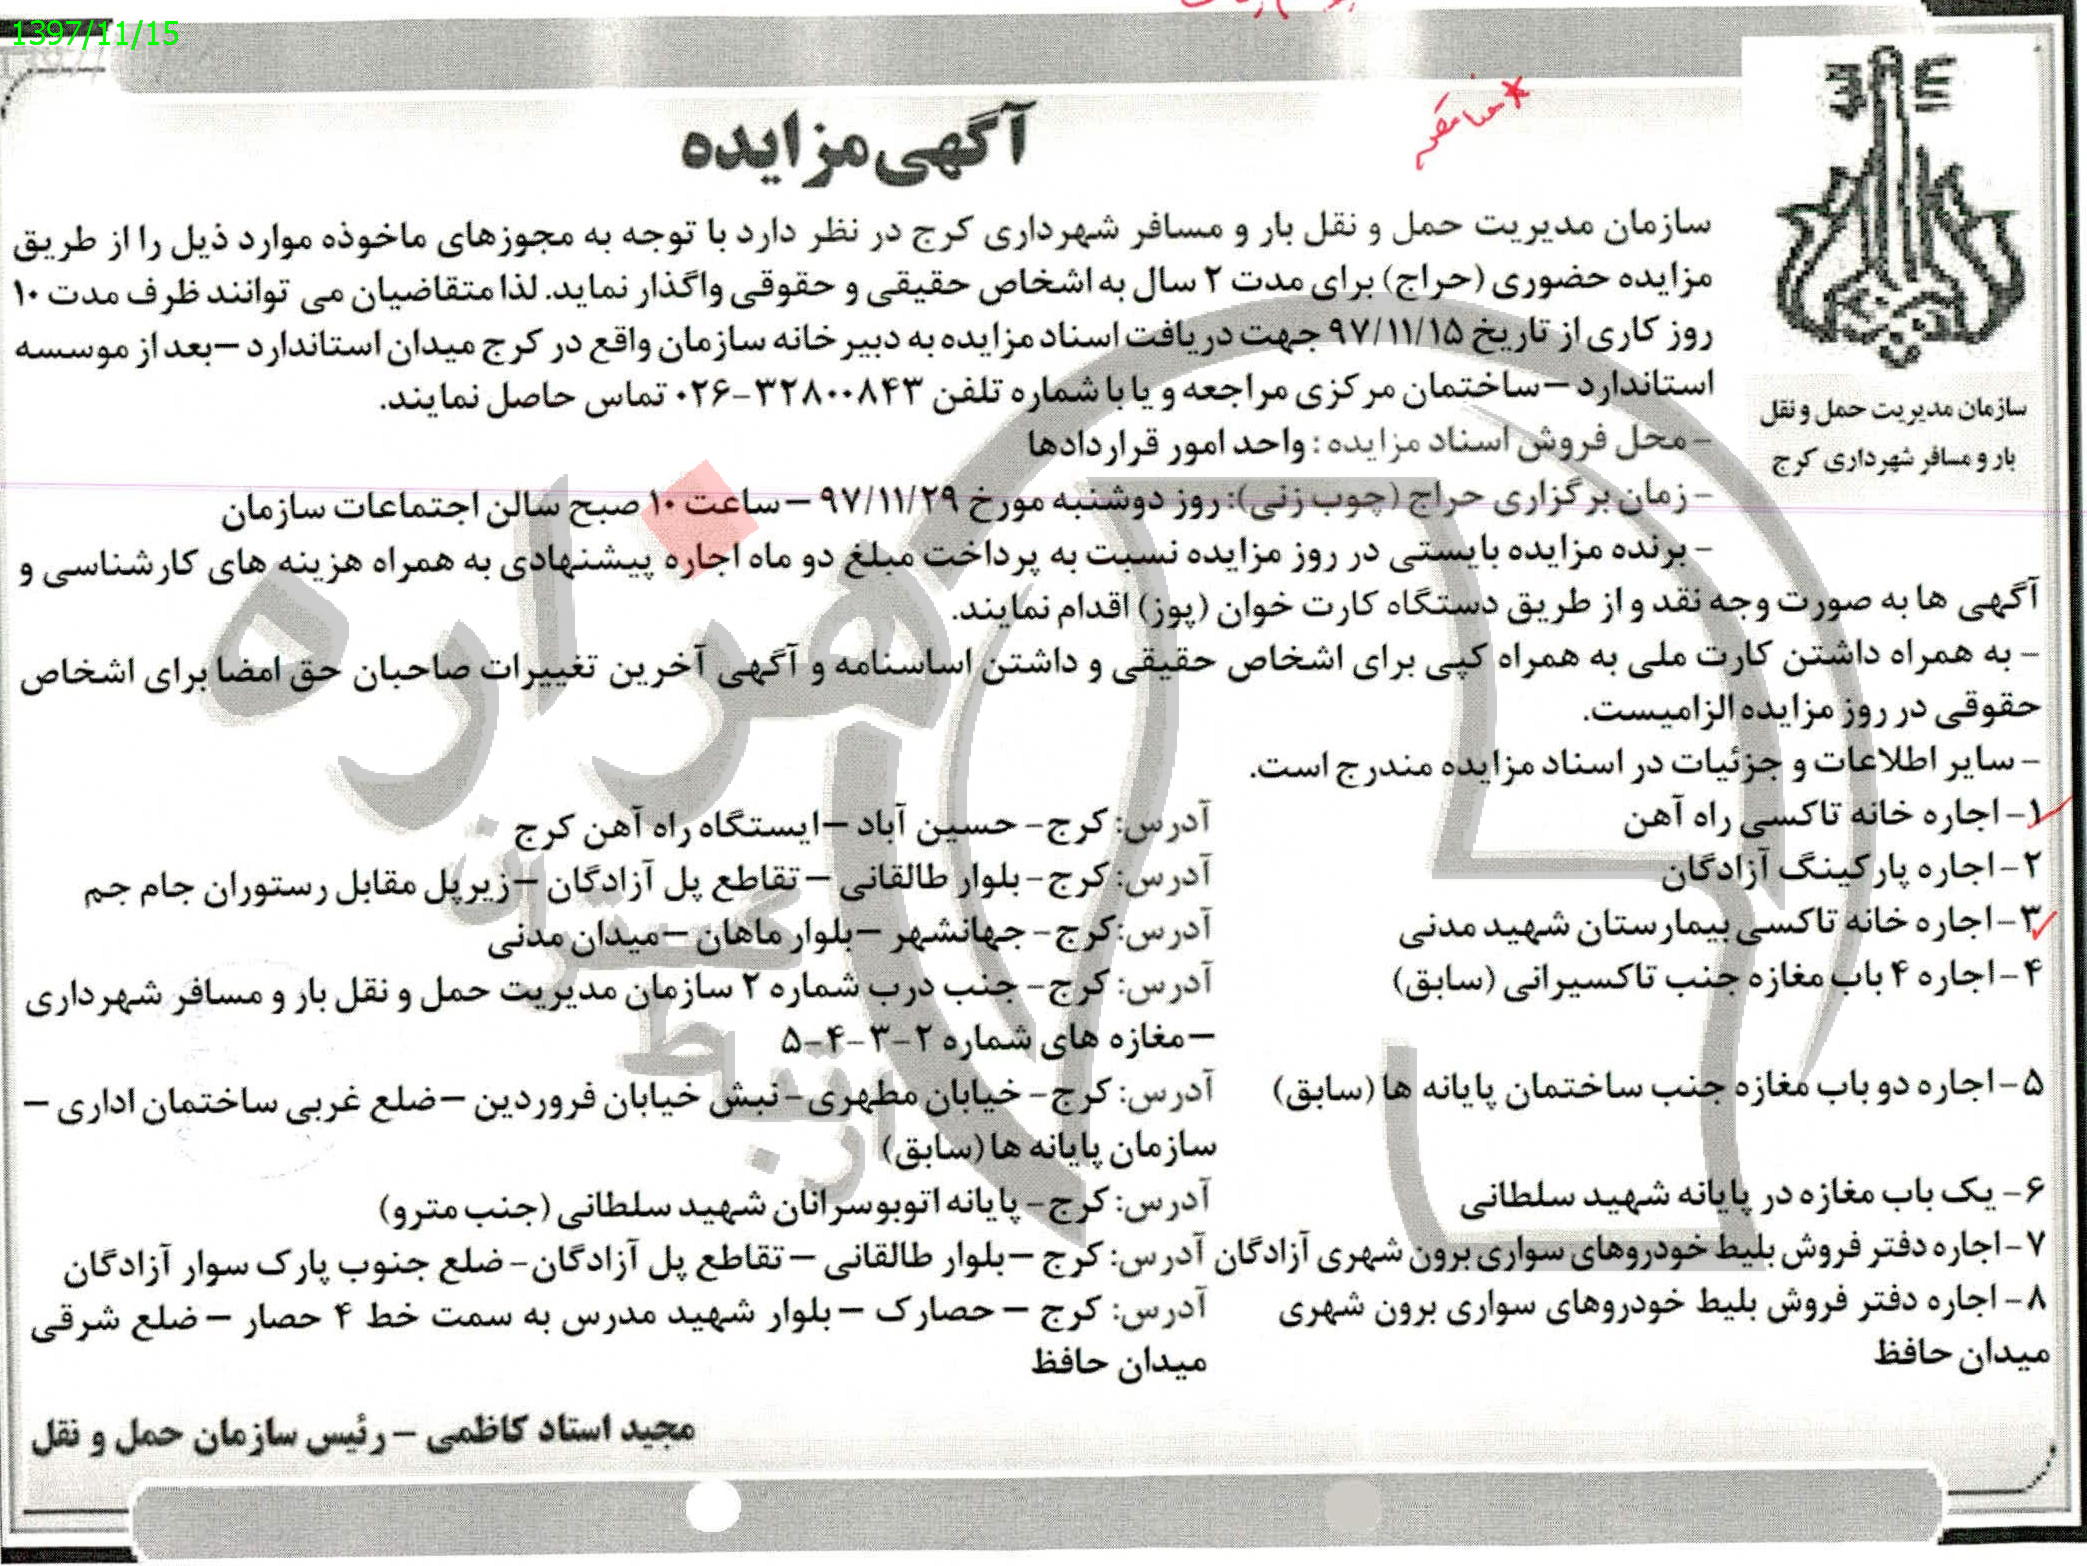 1397/11/15
آگهی مزایده
سازمان مدیریت حمل و نقل
بار و مسافر شهرداری کرج
سازمان مدیریت حمل و نقل بار و مسافر شهرداری کرج در نظر دارد با توجه به مجوزهای ماخوذه موارد ذیل را از طریق
مزایده حضوری (حراج) برای مدت ۲ سال به اشخاص حقیقی و حقوقی واگذار نماید. لذا متقاضیان می توانند ظرف مدت ۱۰
روز کاری از تاریخ ۹۷/۱۱/۱۵ جهت دریافت اسناد مزایده به دبیرخانه سازمان واقع در کرج میدان استاندارد – بعد از موسسه
استاندارد – ساختمان مرکزی مراجعه و یا با شماره تلفن ۳۲۸۰۰۸۴۳-۰۲۶ تماس حاصل نمایند.
- محل فروش اسناد مزایده : واحد امور قراردادها
- زمان برگزاری حراج (چوب زنی): روز دوشنبه مورخ ۹۷/۱۱/۲۹ – ساعت ۱۰ صبح سالن اجتماعات سازمان
- برنده مزایده بایستی در روز مزایده نسبت به پرداخت مبلغ دو ماه اجاره پیشنهادی به همراه هزینه های کارشناسی و
آگهی ها به صورت وجه نقد و از طریق دستگاه کارت خوان (پوز) اقدام نمایند.
- به همراه داشتن کارت ملی به همراه کپی برای اشخاص حقیقی و داشتن اساسنامه و آگهی آخرین تغییرات صاحبان حق امضا برای اشخاص
حقوقی در روز مزایده الزامیست.
- سایر اطلاعات و جزئیات در اسناد مزایده مندرج است.
۱- اجاره خانه تاکسی راه آهن آدرس: کرج- حسین آباد – ایستگاه راه آهن کرج
۲- اجاره پارکینگ آزادگان آدرس: کرج- بلوار طالقانی – تقاطع پل آزادگان – زیرپل مقابل رستوران جام جم
۳- اجاره خانه تاکسی بیمارستان شهید مدنی آدرس: کرج- جهانشهر – بلوار ماهان – میدان مدنی
۴- اجاره ۴ باب مغازه جنب تاکسیرانی (سابق) آدرس: کرج- جنب درب شماره ۲ سازمان مدیریت حمل و نقل بار و مسافر شهرداری
– مغازه های شماره ۲-۳-۴-۵
۵- اجاره دو باب مغازه جنب ساختمان پایانه ها (سابق) آدرس: کرج- خیابان مطهری- نبش خیابان فروردین – ضلع غربی ساختمان اداری –
سازمان پایانه ها (سابق)
۶- یک باب مغازه در پایانه شهید سلطانی آدرس: کرج- پایانه اتوبوسرانان شهید سلطانی (جنب مترو)
۷- اجاره دفتر فروش بلیط خودروهای سواری برون شهری آزادگان آدرس: کرج – بلوار طالقانی – تقاطع پل آزادگان- ضلع جنوب پارک سوار آزادگان
۸- اجاره دفتر فروش بلیط خودروهای سواری برون شهری آدرس: کرج – حصارک – بلوار شهید مدرس به سمت خط ۴ حصار – ضلع شرقی
میدان حافظ میدان حافظ
مجید استاد کاظمی – رئیس سازمان حمل و نقل
هزاره
گسترش
ارتباط